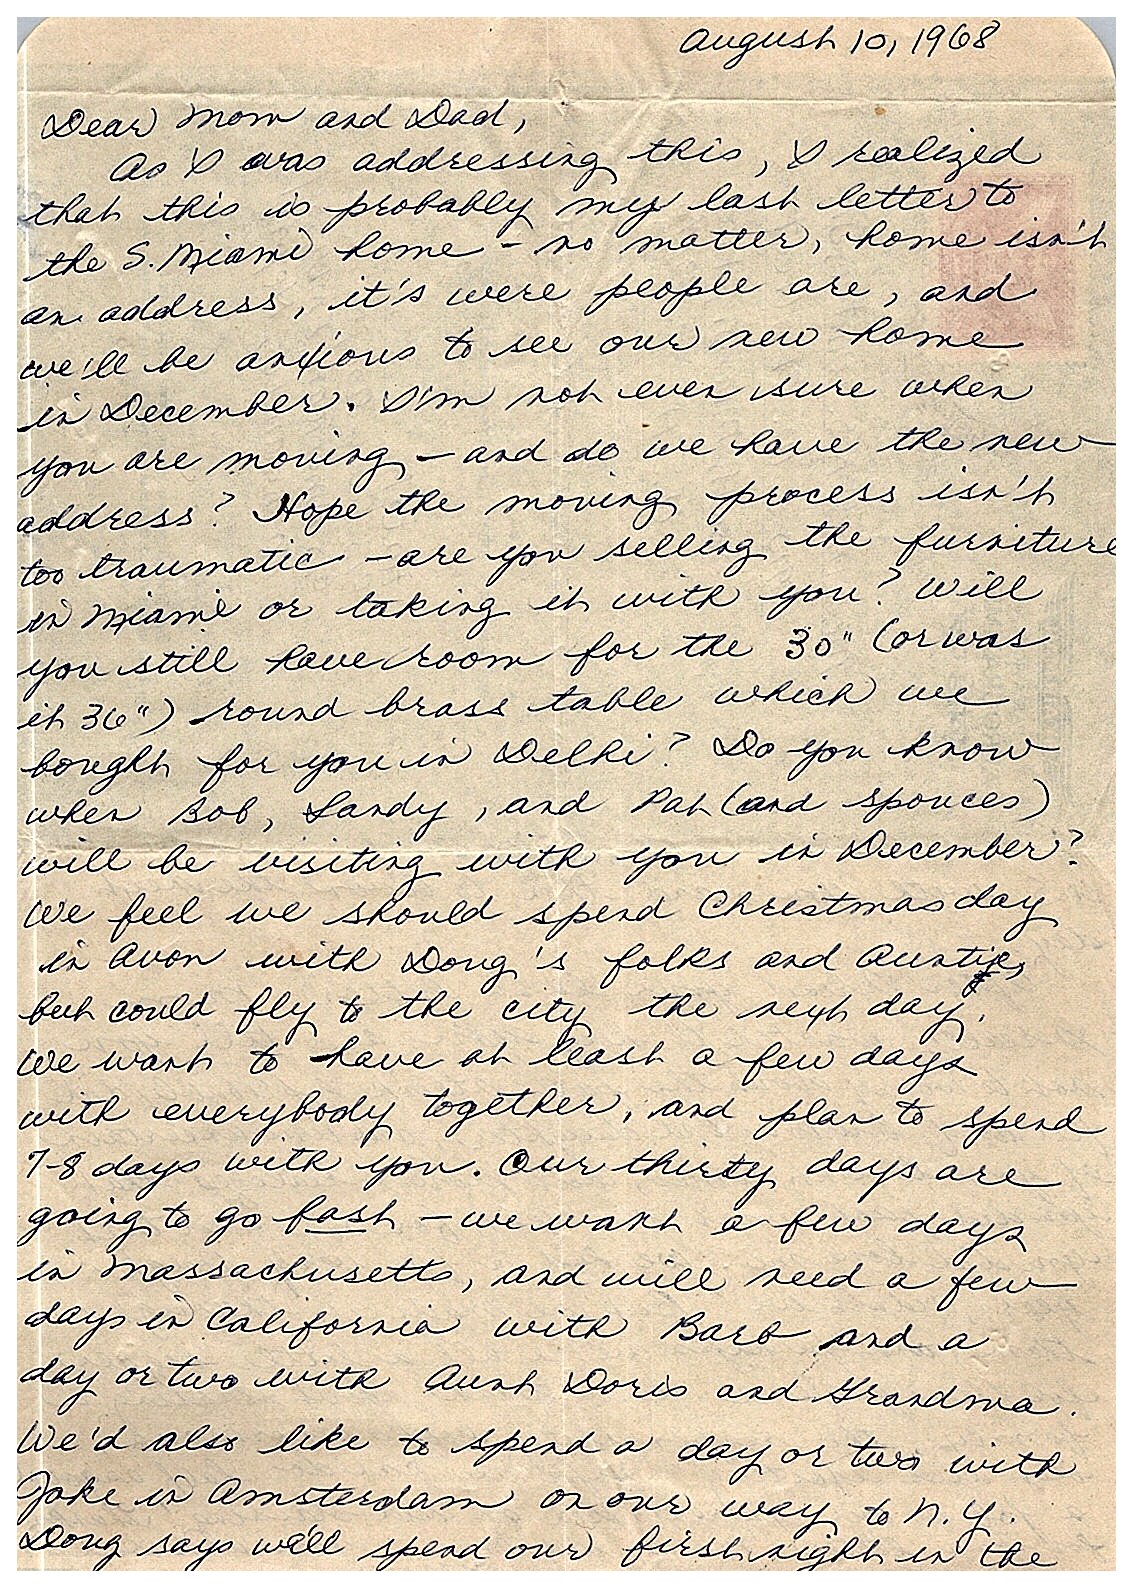 August 10, 1968
Dear Mom and Dad,
As I was addressing this, I realized
that this is probably my last letter to
the S. Miami home – no matter, home isn't
an address, it's were people are, and
we'll be anxious to see our new home
in December. I'm not even sure when
you are moving – and do we have the new
address? Hope the moving process isn't
too traumatic – are you selling the furniture
in Miami or taking it with you? Will
you still have room for the 30" (or was
it 36") round brass table which we
bought for you in Delhi? Do you know
when Bob, Sandy, and Pat (and spouces)
will be visiting with you in December?
We feel we should spend Christmas day
in Avon with Doug's folks and Auntie,
but could fly to the city the next day.
We want to have at least a few days
with everybody together, and plan to spend
7-8 days with you. Our thirty days are
going to go fast – we want a few days
in Massachusetts, and will need a few
days in California with Barb and a
day or two with Aunt Doris and Grandma.
We'd also like to spend a day or two with
Joke in Amsterdam on our way to N.Y.
Doug says we'll spend our first night in the